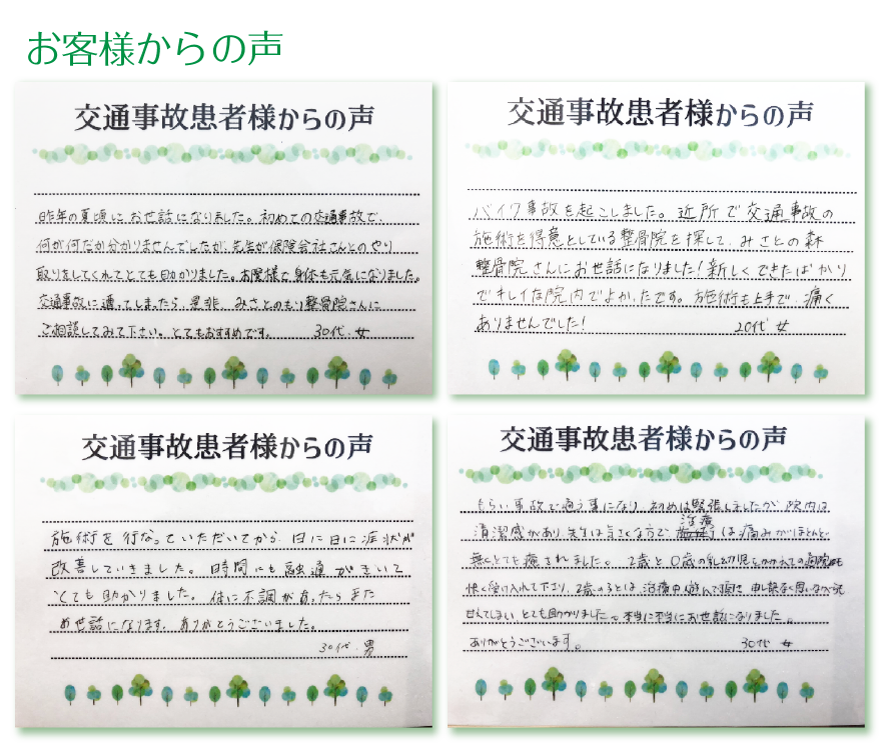 お客様からの声
交通事故患者様からの声
昨年の夏頃にお世話になりました。初めての交通事故で、
何が何だか分かりませんでしたが、先生が保険会社さんとのやり
取りをしてくれてとても助かりました。お陰様で身体も元気になりました。
交通事故に遭ってしまったら、是非、みさとのもり整骨院さんに
ご相談してみて下さい。とてもおすすめです。 30代.女
交通事故患者様からの声
バイク事故を起こしました。近所で交通事故の
施術を得意としている整骨院を探して、みさとの森
整骨院さんにお世話になりました!新しくできたばかり
でキレイな院内でよかったです。施術も上手で、痛く
ありませんでした! 20代 女
交通事故患者様からの声
施術を行なっていただいてから、日に日に症状が
改善していきました。時間にも融通がきいて
とても助かりました。体に不調が有ったらまた
お世話になります。ありがとうございました。
30代.男
交通事故患者様からの声
もらい事故で通う事になり、初めは緊張しましたが院内は
清潔感があり、先生は気さくな方で、治療は痛みがほとんど
無くとても癒されました。2歳と0歳の乳幼児をかかえての通院も
快く受け入れて下さり、2歳の子とは、治療中遊んで頂き、申し訳なく思いながらも
甘えてしまい、とても助かりました。本当に本当にお世話になりました。
ありがとうございます。 30代 女